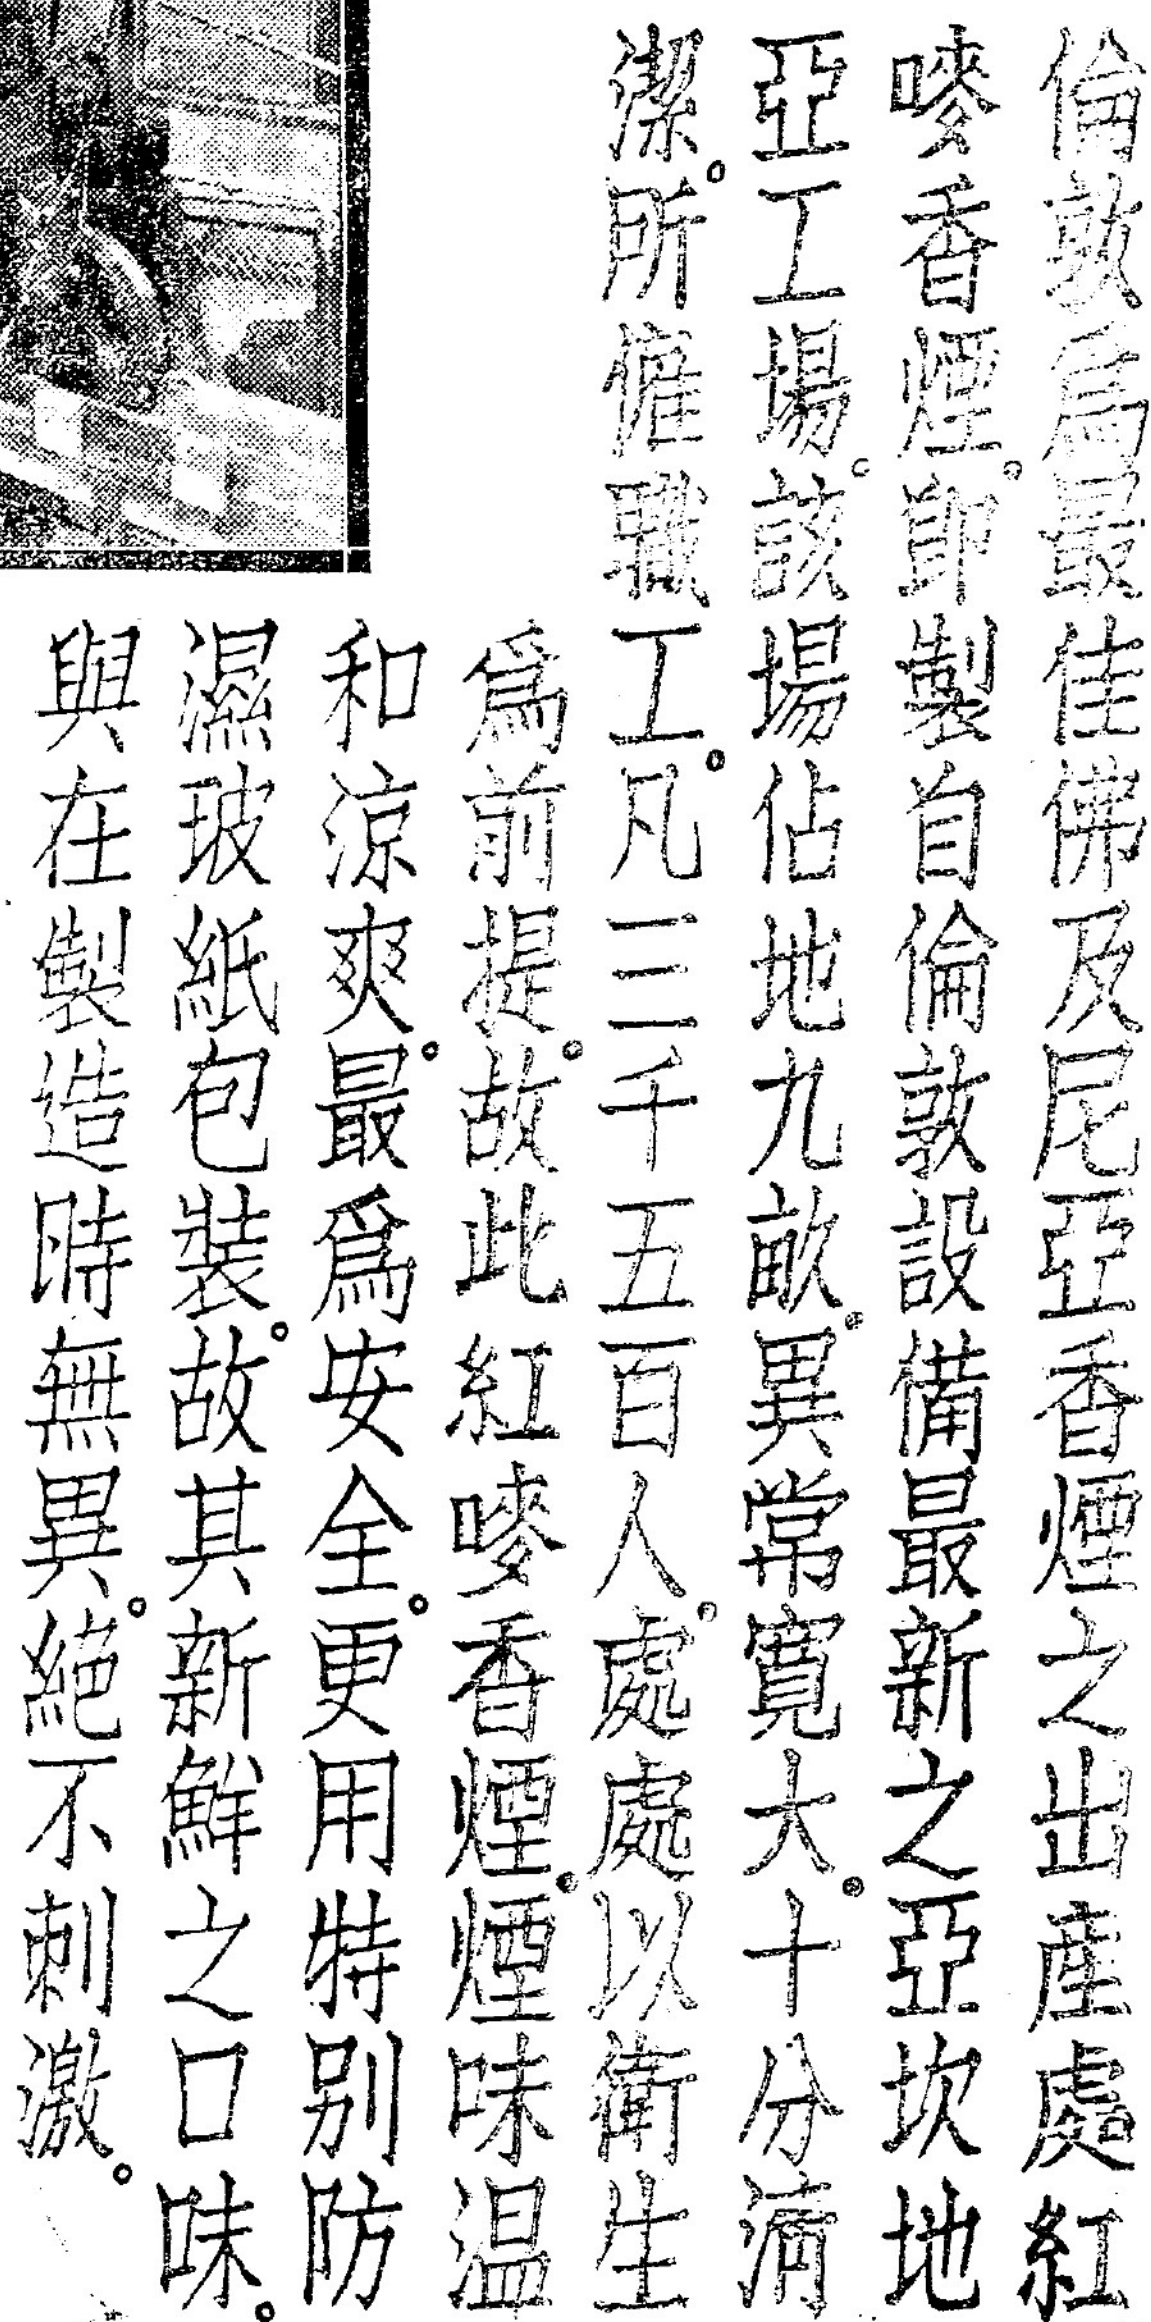 倫敦爲最佳佛及尼亞香煙之出產處紅
嘜香煙。即製自倫敦設備最新之亞坎地
亞工場。該場佔地九畝。異常寬大。十分清
潔。所僱職工。凡三千五百人。處處以衛生
爲前提。故此紅嘜香煙。煙味温
和涼爽。最爲安全。更用特別防
濕玻紙包裝。故其新鮮之口味。
與在製造時無異。絕不刺激。